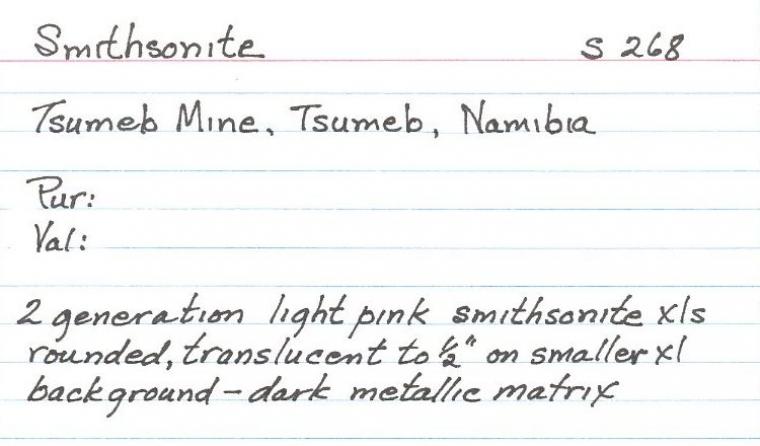 Smithsonite S 268
Tsumeb Mine, Tsumeb, Namibia
Pur:
Val:
2 generation light pink smithsonite xls
rounded, translucent to ½" on smaller xl
background - dark metallic matrix